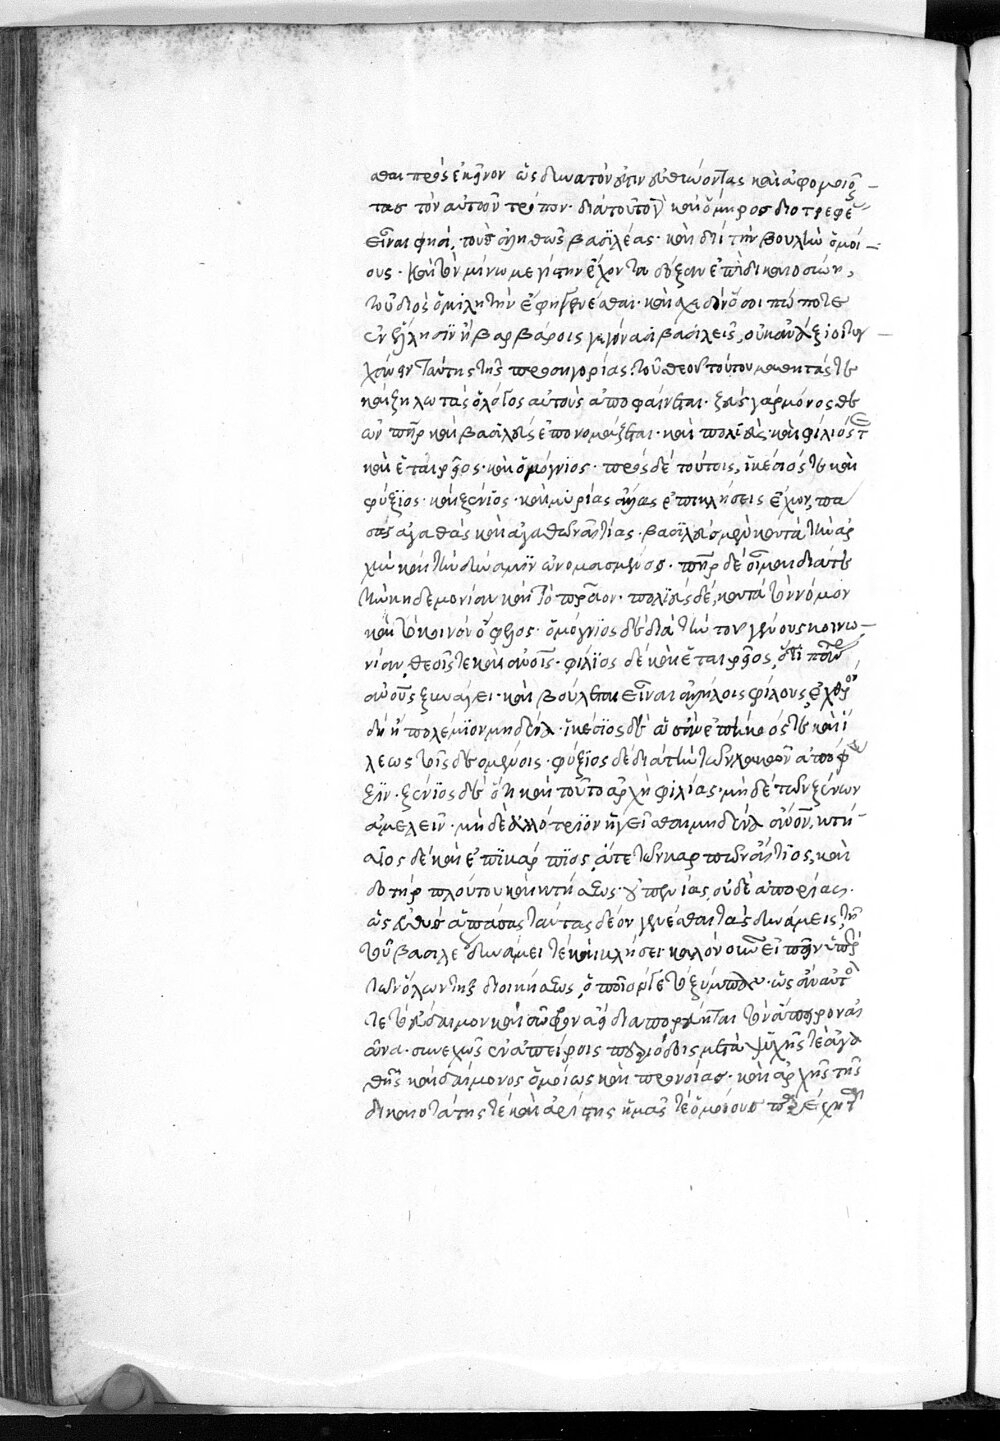 σθαι πρὸς ἐκεῖνον ὡς δυνατόν ἐστιν εὐθύνοντας καὶ ἀφομοιοῦν
τας τὸν αὑτῶν τρόπον· διὰ τοῦτο καὶ ὅμηρος διοτρεφέας
εἶναι φησὶ, τοὺς ἀληθῶς βασιλέας· καὶ διὶ τὴν βουλὴν ὁμοί
ους· καὶ τὸν μίνω μεγίστην ἔχοντα δόξαν ἐπὶ δικαιοσύνῃ,
τοῦ διὸς ὁμιλητὴν ἔφη γενέσθαι· καὶ σχεδὸν ὅσοι πώποτε
ἐν ἕλλησιν ἢ βαρβάροις γεγόνασι βασιλεῖς, οὐκ ἀνάξιοι τυγ
χάνειν ταύτης τῆς προσηγορίας. τοῦ θεοῦ τούτου μαθητάς τε
καὶ ζηλωτὰς ὁ λόγος αὐτοὺς ἀποφαίνεται· ζεὺς γὰρ μόνος θε
ῶν πατὴρ καὶ βασιλεὺς ἐπονομάζεται· καὶ πολιεὺς· καὶ φίλιός τε
καὶ ἑταιρεῖος· καὶ ὁμόγνιος· πρὸς δὲ τούτοις, ἱκέσιός τε καὶ
φύξιος· καὶ ξένιος· καὶ μυρίας ἄλλας ἐπικλήσεις ἔχων, πά
σας ἀγαθὰς καὶ ἀγαθῶν αἰτίας· βασιλεὺς μὲν κατὰ τὴν ἀρ
χὴν καὶ τὴν δύναμιν ὠνομασμένος· πατὴρ δὲ οἶμαι διά τε
τὴν κηδεμονίαν καὶ τὸ πρᾶον· πολιεὺς δὲ, κατὰ τὸν νόμον
καὶ τὸ κοινὸν ὄφελος· ὁμόγνιος δὲ διὰ τὴν τοῦ γένους κοινω
νίαν, θεοῖς τε καὶ ἀνοις· φίλιος δὲ καὶ ἑταιρεῖος, ὅτι πάντας
ἀνους ξυνάγει· καὶ βούλεται εἶναι ἀλλήλοις φίλους, ἐχθρὸν
δὲ ἢ πολέμιον μηδένα· ἱκέσιος δὲ ὡς ἂν ἐπήκοός τε καὶ ἵ
λεως τοῖς δεομένοις· φύξιος δὲ διὰ τὴν τῶν κακῶν ἀπόφυ
ξιν· ξένιος δὲ ὅτι καὶ τοῦτο ἀρχὴ φιλίας· μηδὲ τῶν ξένων
ἀμελεῖν· μηδὲ ἀλλότριον ἡγεῖσθαι μηδένα ἀνον, κτή
σιος δὲ καὶ ἐπικάρπιος, ἅτε τῶν καρπῶν αἴτιος, καὶ
δοτὴρ πλούτου καὶ κτήσεως· οὐ πενίας, οὐδὲ ἀπορίας·
ὡς εὐθὺς ἁπάσας ταύτας δέον γενέσθαι τὰς δυνάμεις, τῇ
τοῦ βασιλέως δυνάμει τε καὶ κλήσει· καλὸν οὖν εἰπεῖν ὑπὲρ
τῶν ὅλων τῆς διοικήσεως, ὁποῖόν γε τὸ ξύμπαν· ὡς ἂν αὐτό
τε τὸ εὔδαιμον καὶ σῶφρον ἀεὶ διαπορεύηται τὸν ἄπειρον αἰ
ῶνα· συνεχῶς ἐν ἀπείροις περιόδοις μετὰ ψυχῆς τε ἀγα
θῆς καὶ δαίμονος ὁμοίως καὶ προνοίας· καὶ ἀρχῆς τῆς
δικαιοτάτης τε καὶ ἀρίστης ἡμᾶς τε ὁμοίους παρέχηται